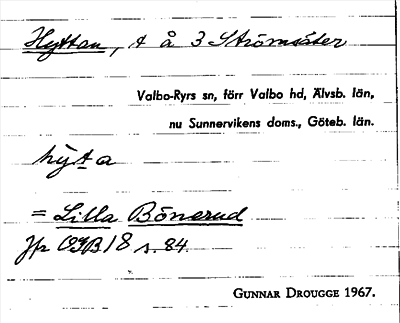 Hyttan, t å 3 Strömsäter
Valbo-Ryrs sn, förr Valbo hd, Älvsb. län,
nu Sunnervikens doms., Göteb. län.
hy̆ta
= Lilla Bönerud
Jfr OGB 18 s. 84
GUNNAR DROUGGE 1967.